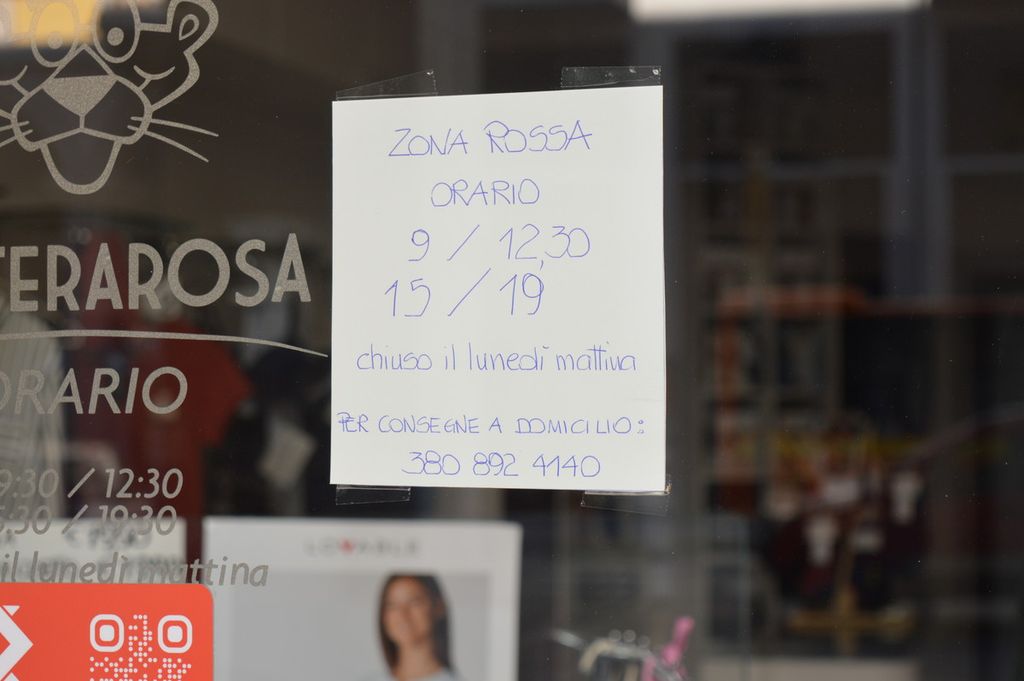 ZONA ROSSA
ORARIO
9 / 12,30
15 / 19
chiuso il lunedì mattina
PER CONSEGNE A DOMICILIO:
380 892 4140
TERAROSA
ORARIO
9:30 / 12:30
5:30 / 19:30
il lunedì mattina
LOVABLE